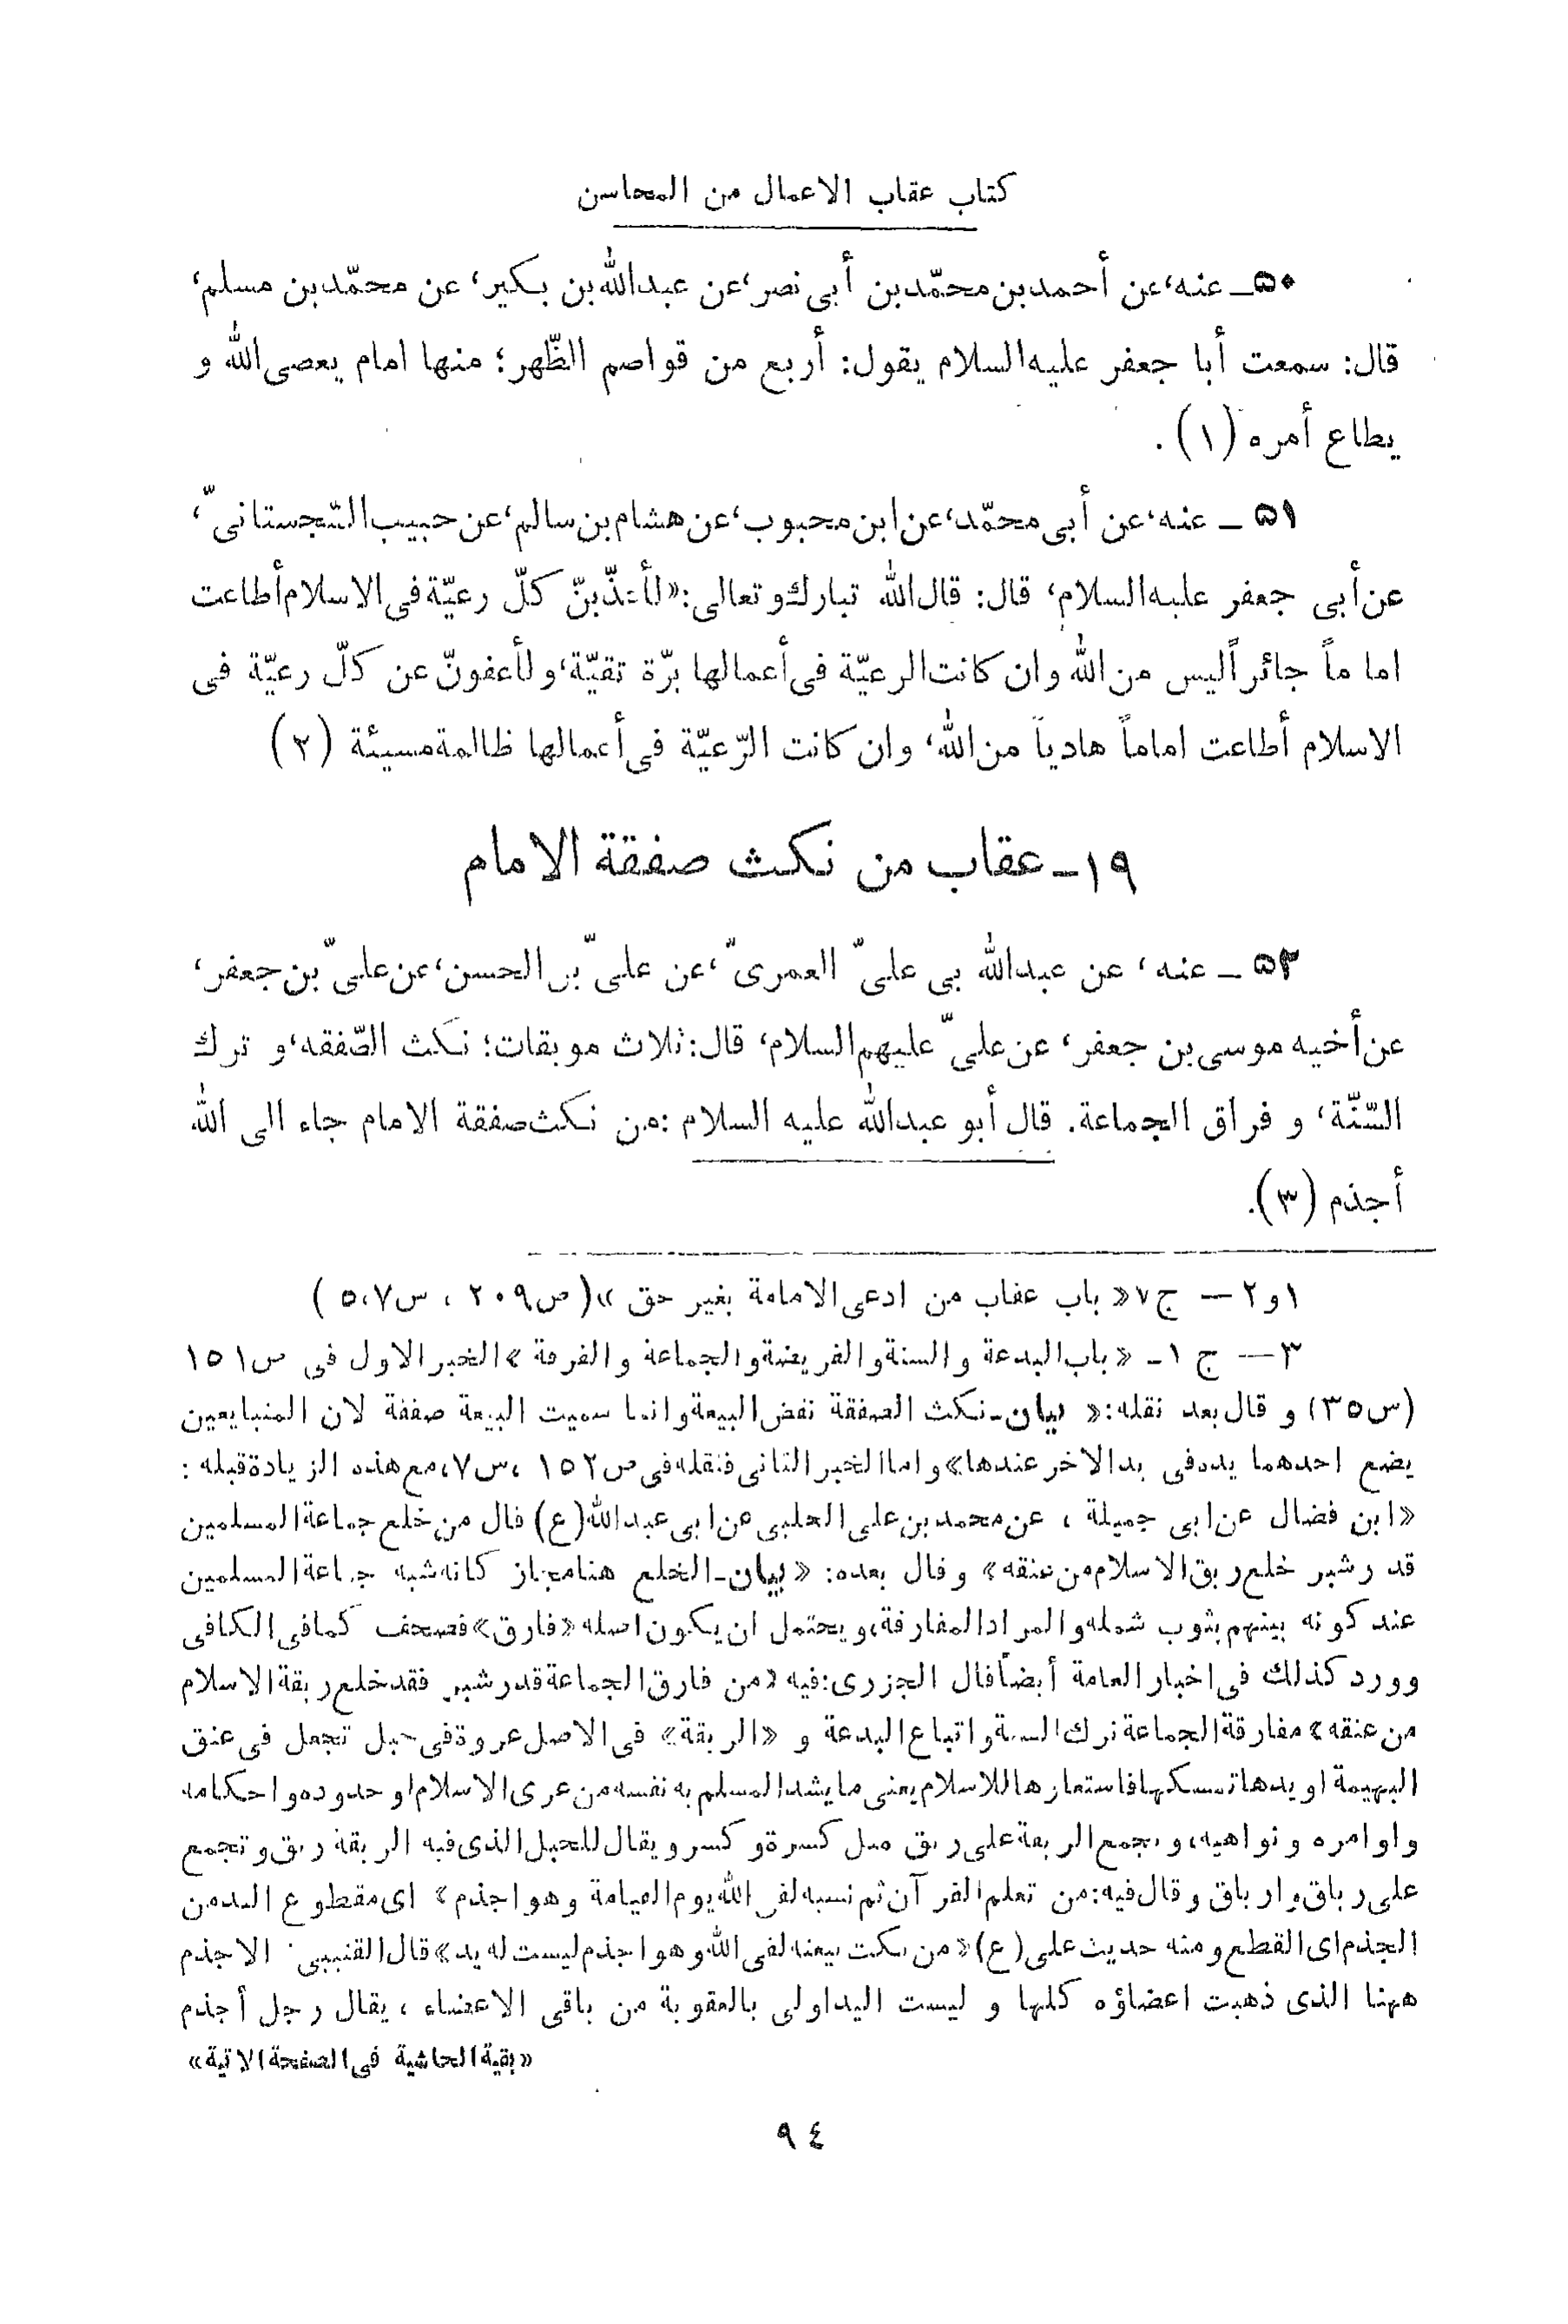 كتاب عقاب الاعمال من المحاسن
٥٠ـ عنه،عن أحمدبن محمّدبن أبى نصر،عن عبدالله بن بكير، عن محمّدبن مسلم،
قال: سمعت أبا جعفر عليه السلام يقول: أربع من قواصم الظّهر؛ منها امام يعصى الله و
يطاع أمره (١).
٥١ ـ عنه،عن أبى محمّد،عن ابن محبوب،عن هشام بن سالم،عن حبيب السّجستانىّ،
عن أبى جعفر عليه السلام، قال: قال الله تبارك وتعالى:«لأعذّبنّ كلّ رعيّة فى الاسلام أطاعت
اما ماً جائراً ليس من الله وان كانت الرعيّة فى أعمالها برّة تقيّة،ولأعفونّ عن كلّ رعيّة فى
الاسلام أطاعت اماماً هادياً من الله، وان كانت الرّعيّة فى أعمالها ظالمة مسيئة (٢)
١٩ـ عقاب من نكث صفقة الامام
٥٣ ـ عنه، عن عبدالله بى علىّ العمرىّ،عن علىّ بن الحسن،عن علىّ بن جعفر،
عن أخيه موسى بن جعفر، عن علىّ عليهم السلام، قال: ثلاث موبقات؛ نكث الصّفقه،و ترك
السّنّة، و فراق الجماعة. قال أبو عبدالله عليه السلام :من نكث صفقة الامام جاء الى الله
أجذم (٣).
١و٢ — ج٧« باب عقاب من ادعى الامامة بغير حق »(ص٢٠٩ ، س٥،٧ )
٣— ج ١ـ «باب البدعة والسنة والفريضة والجماعة والفرقة »الخبر الاول فى ص١٥١
(س٣٥) و قال بعد نقله:« بيان ـ نكث الصفقة نقض البيعة وانما سميت البيعة صفقة لان المتبايعين
يضع احدهما يده فى يد الاخر عندها» واما الخبر الثانى فنقله فى ص١٥٢ ،س٧،مع هذه الزيادة قبله :
«ابن فضال عن ابى جميلة ، عن محمد بن على الحلبى عن ابى عبدالله(ع) قال من خلع جماعة المسلمين
قدر شبر خلع ربق الاسلام من عنقه» وقال بعده: «بيان ـ الخلع هنا مجاز كانه شبه جماعة المسلمين
عند كونه بينهم بثوب شمله والمراد المفارقة،ويحتمل ان يكون اصله «فارق» فصحف كما فى الكافى
وورد كذلك فى اخبار العامة أيضاً قال الجزرى:فيه «من فارق الجماعة قدر شبر فقد خلع ربقة الاسلام
من عنقه» مفارقة الجماعة ترك السنة واتباع البدعة و «الربقة» فى الاصل عروة فى حبل تجعل فى عنق
البهيمة او يدها تمسكها فاستعارها للاسلام يعنى ما يشد المسلم به نفسه من عرى الاسلام او حدوده واحكامه
واوامره ونواهيه،وتجمع الربقة على ربق مثل كسرة وكسر ويقال للحبل الذى فيه الربقة ربق وتجمع
على رباق وارباق وقال فيه:من تعلم القرآن ثم نسيه لقى الله يوم القيامة وهو اجذم» اى مقطوع اليد من
الجذم اى القطع ومنه حديث على (ع)«من نكث بيعته لقى الله وهو اجذم ليست له يد» قال القتيبى الاجذم
ههنا الذى ذهبت اعضاؤه كلها و ليست اليد اولى بالعقوبة من باقى الاعضاء ، يقال رجل أجذم
«بقية الحاشية فى الصفحة الاتية»
٩٤